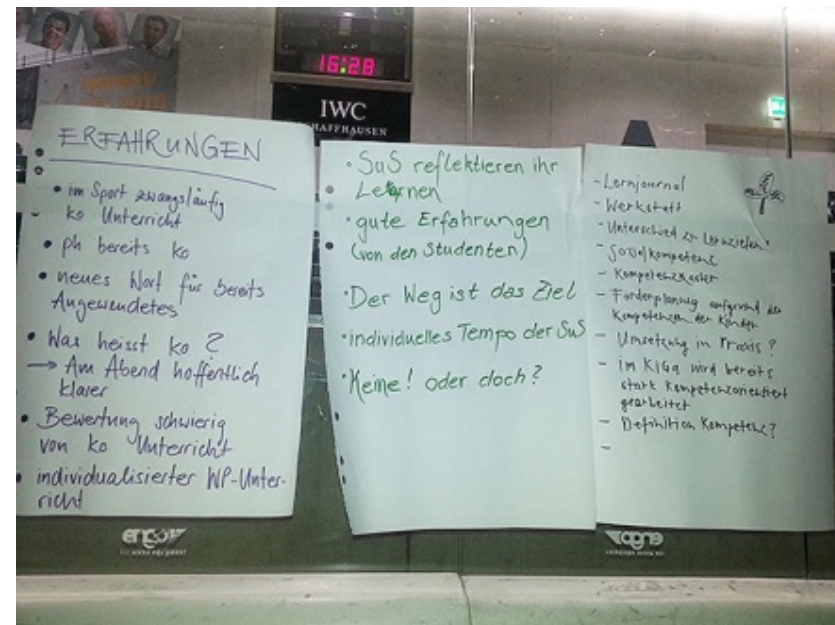 16:28
IWC
SCHAFFHAUSEN
ERFAHRUNGEN
• im Sport zwangsläufig
ko Unterricht
• ph bereits ko
• neues Wort für bereits
Angewendetes
• Was heisst ko?
→ Am Abend hoffentlich
klarer
• Bewertung schwierig
von ko Unterricht
• individualisierter WP-Unter-
richt
• SuS reflektieren ihr
Lernen
• gute Erfahrungen
(von den Studenten)
• Der Weg ist das Ziel
• individuelles Tempo der SuS
• Keine! oder doch?
- Lernjournal
- Werkstatt
- Unterschied zu Lernzielen?
- Sozialkompetenz
- Kompetenzraster
- Förderplanung aufgrund der
Kompetenzen der Kinder
- Umsetzung in Praxis?
- im KiGa wird bereits
stark kompetenzorientiert
gearbeitet
- Definition Kompetenz?
-
engo